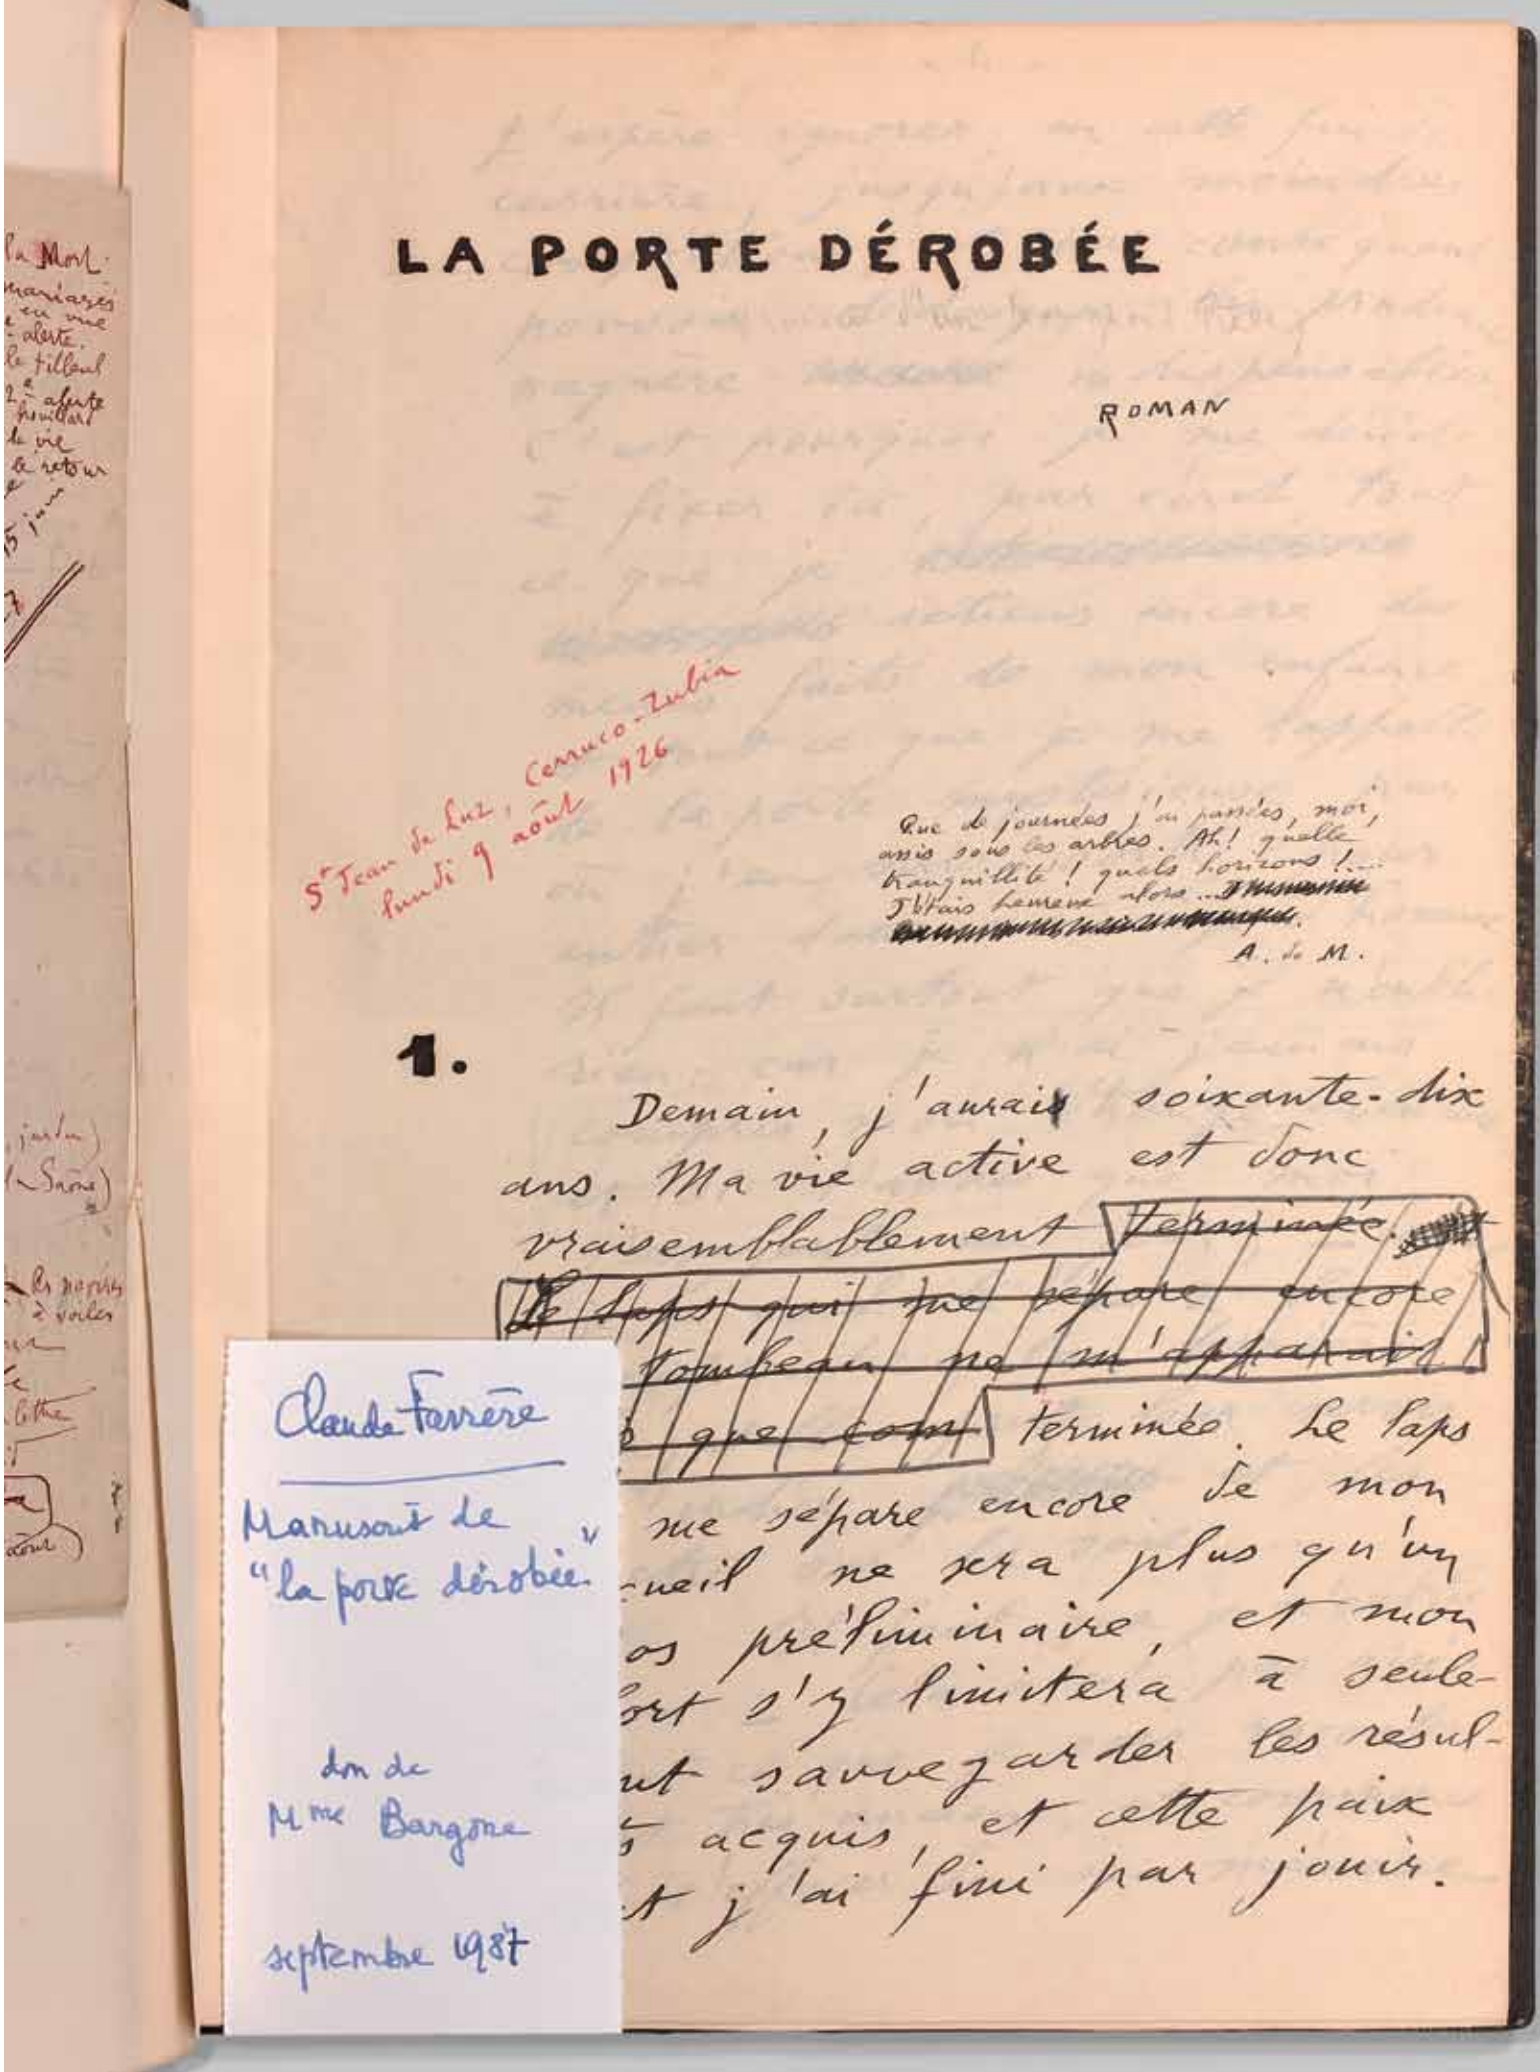 la Mort
mariages
en vue
alerte.
le tilleul
2e alerte
brouillard
la vie
le retour
15 jun
jardin)
Saône)
les navires
à voiles
lettre
août)
LA PORTE DÉROBÉE
ROMAN
St Jean de Luz, Cerruco-Zubia
lundi 9 août 1926
Que de journées j'ai passées, moi,
assis sous les arbres. Ah! quelle
tranquillité! quels horizons!...
J'étais heureux alors...
A. de M.
1.
Demain, j'aurai soixante-dix
ans. Ma vie active est donc
vraisemblablement terminée.
Le laps qui me sépare encore
tombeau ne m'apparait
que com terminée. Le laps
me sépare encore de mon
cueil ne sera plus qu'un
os préliminaire, et mon
fort s'y limitera à seule-
nt sauvegarder les résul-
ts acquis, et cette paix
t j'ai fini par jouir.
Claude Farrère
Manuscrit de
"la porte dérobée"
don de
Mme Bargone
septembre 1987